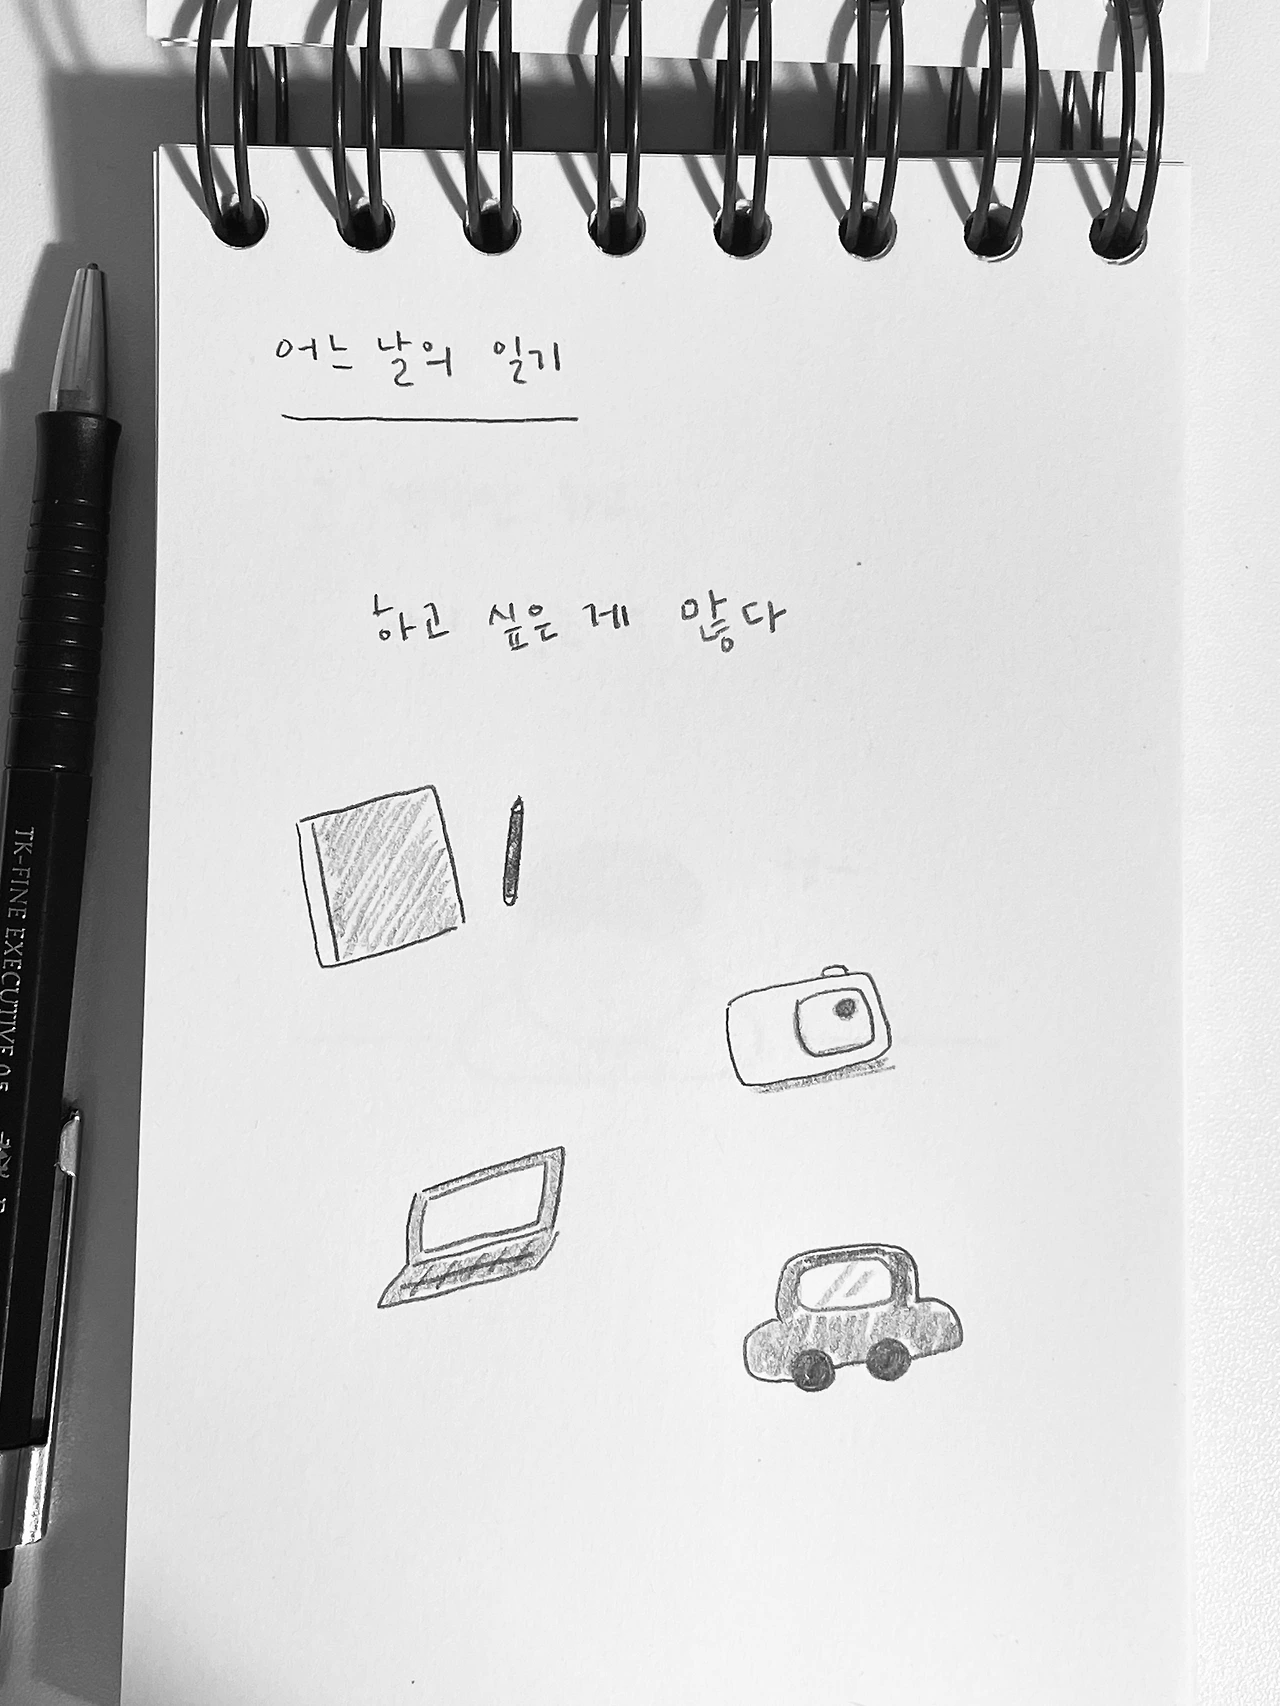 어느 날의 일기
하고 싶은 게 많다
TK-FINE EXECUTIVE 0.5